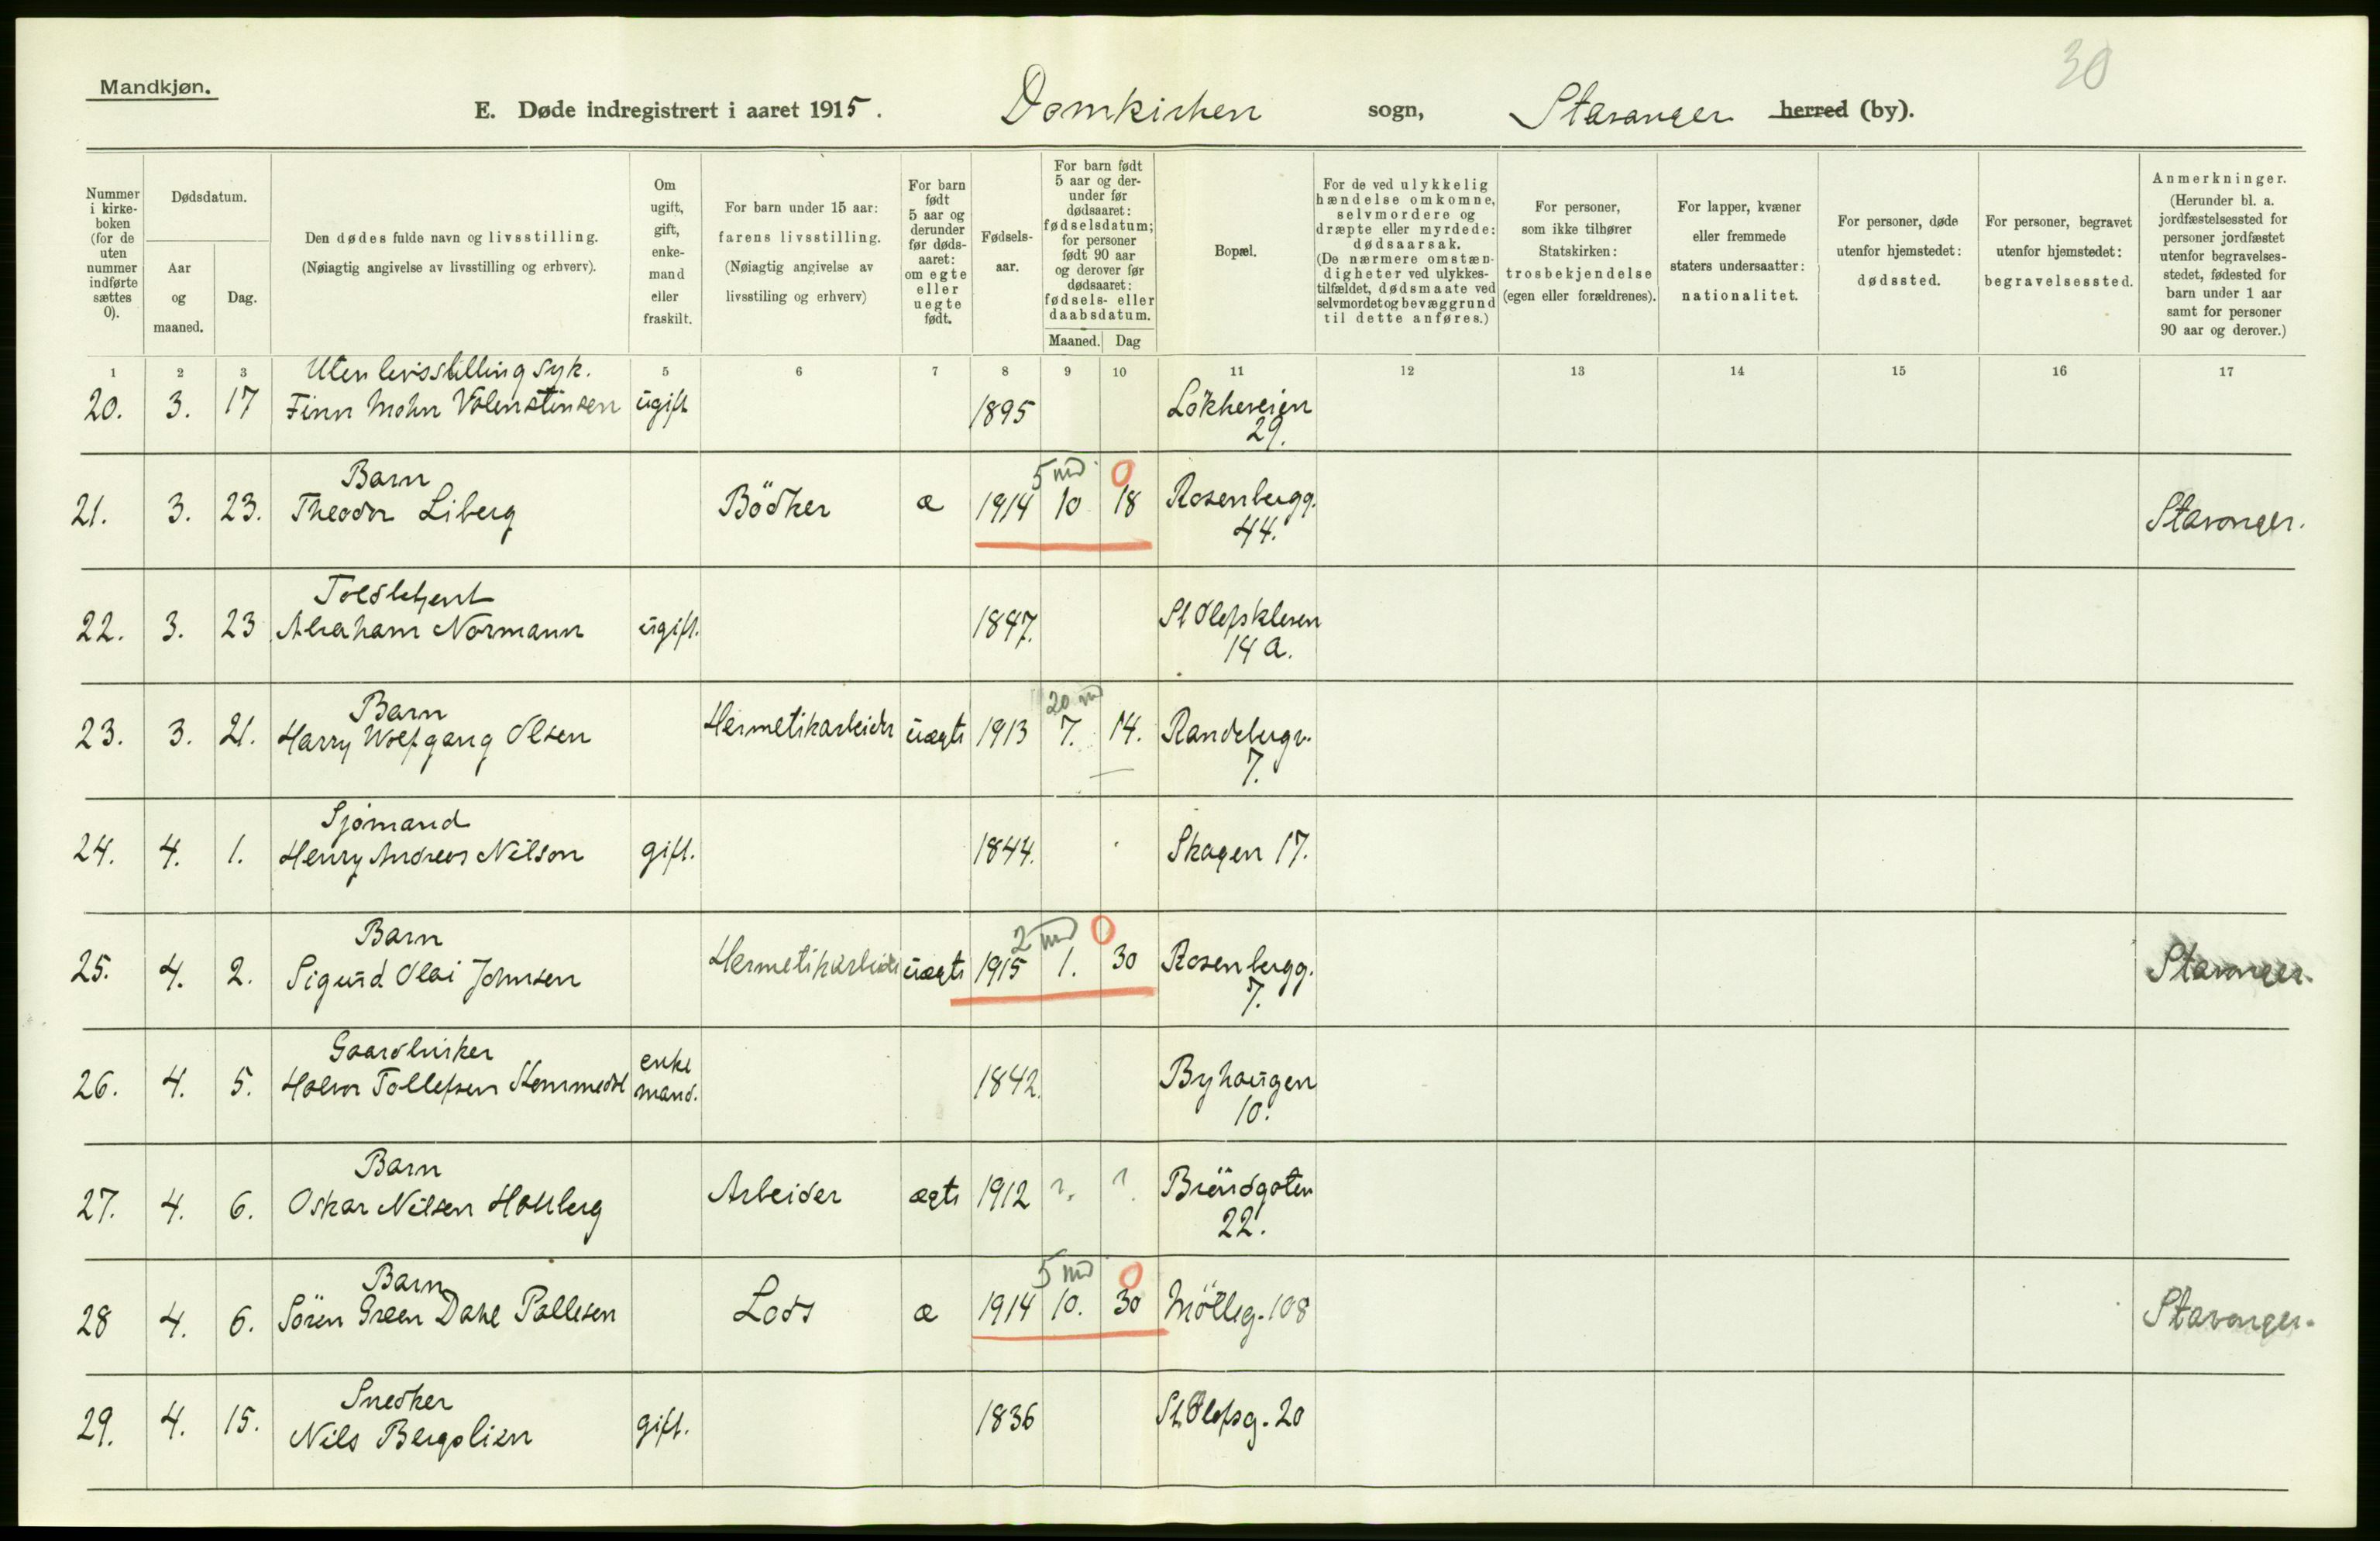 30
Mandkjøn.
E. Døde indregistrert i aaret 1915. Domkirken sogn, Stavanger herred (by).
Nummer i kirke- boken (for de uten nummer indførte sættes 0).
Dødsdatum.
Aar og maaned.
Dag.
Den dødes fulde navn og livsstilling.
(Nøiagtig angivelse av livsstilling og erhverv).
Om ugift, gift, enke- mand eller fraskilt.
For barn under 15 aar: farens livsstilling.
(Nøiagtig angivelse av livsstiling og erhverv)
For barn født 5 aar og derunder før døds- aaret: om egte eller uegte født.
Fødsels- aar.
For barn født 5 aar og der- under før dødsaaret: fødselsdatum; for personer født 90 aar og derover før dødsaaret: fødsels- eller daabsdatum.
Maaned. Dag
Bopæl.
For de ved ulykkelig hændelse omkomne, selvmordere og dræpte eller myrdede: dødsaarsak. (De nærmere omstæn- digheter ved ulykkes- tilfældet, dødsmaate ved selvmordet og bevæggrund til dette anføres.)
For personer, som ikke tilhører Statskirken: trosbekjendelse (egen eller forældrenes).
For lapper, kvæner eller fremmede staters undersaatter: nationalitet.
For personer, døde utenfor hjemstedet: dødssted.
For personer, begravet utenfor hjemstedet: begravelsessted.
Anmerkninger. (Herunder bl. a. jordfæstelsessted for personer jordfæstet utenfor begravelses- stedet, fødested for barn under 1 aar samt for personer 90 aar og derover.)
1 2 3 5 6 7 8 9 10 11 12 13 14 15 16 17
Uten livsstilling syk.
20. 3. 17 Finn Mohn Valentinsen ugift 1895 Lökkeveien
29.
Barn 5 md 0
21. 3. 23. Theodor Liberg Bödker æ 1914 10 18 Rosenbergg. Stavanger.
44.
Toldbetjent
22. 3. 23 Abraham Normann ugift. 1847. St Olafskleven
14 a.
Barn 20 md
23. 3. 21. Harry Wolfgang Olsen Hermetikarbeider uægte 1913 7. 14. Randebergv.
7.
Sjömand
24. 4. 1. Henry Andreas Nilson gift. 1844. Skagen 17.
Barn 2 md 0
25. 4. 2. Sigurd Olai Johnsen Hermetikarbeider uægte 1915 1. 30 Rosenbergg. Stavanger.
7.
Gaardbruker
26. 4. 5. Halvor Tollefsen enke mand. 1842. Byhaugen
10.
Barn
27. 4. 6. Oskar Nilsen Hallberg Arbeider ægte 1912 ?. ?. Bröndgaten
22.
Barn 5 md 0
28 4. 6. Sören Green Dahl Pallesen Lods æ 1914 10. 30 Mölleg. 108 Stavanger.
Snedker
29. 4. 15. Nils Bergslien gift. 1836 St. Olafsg. 20